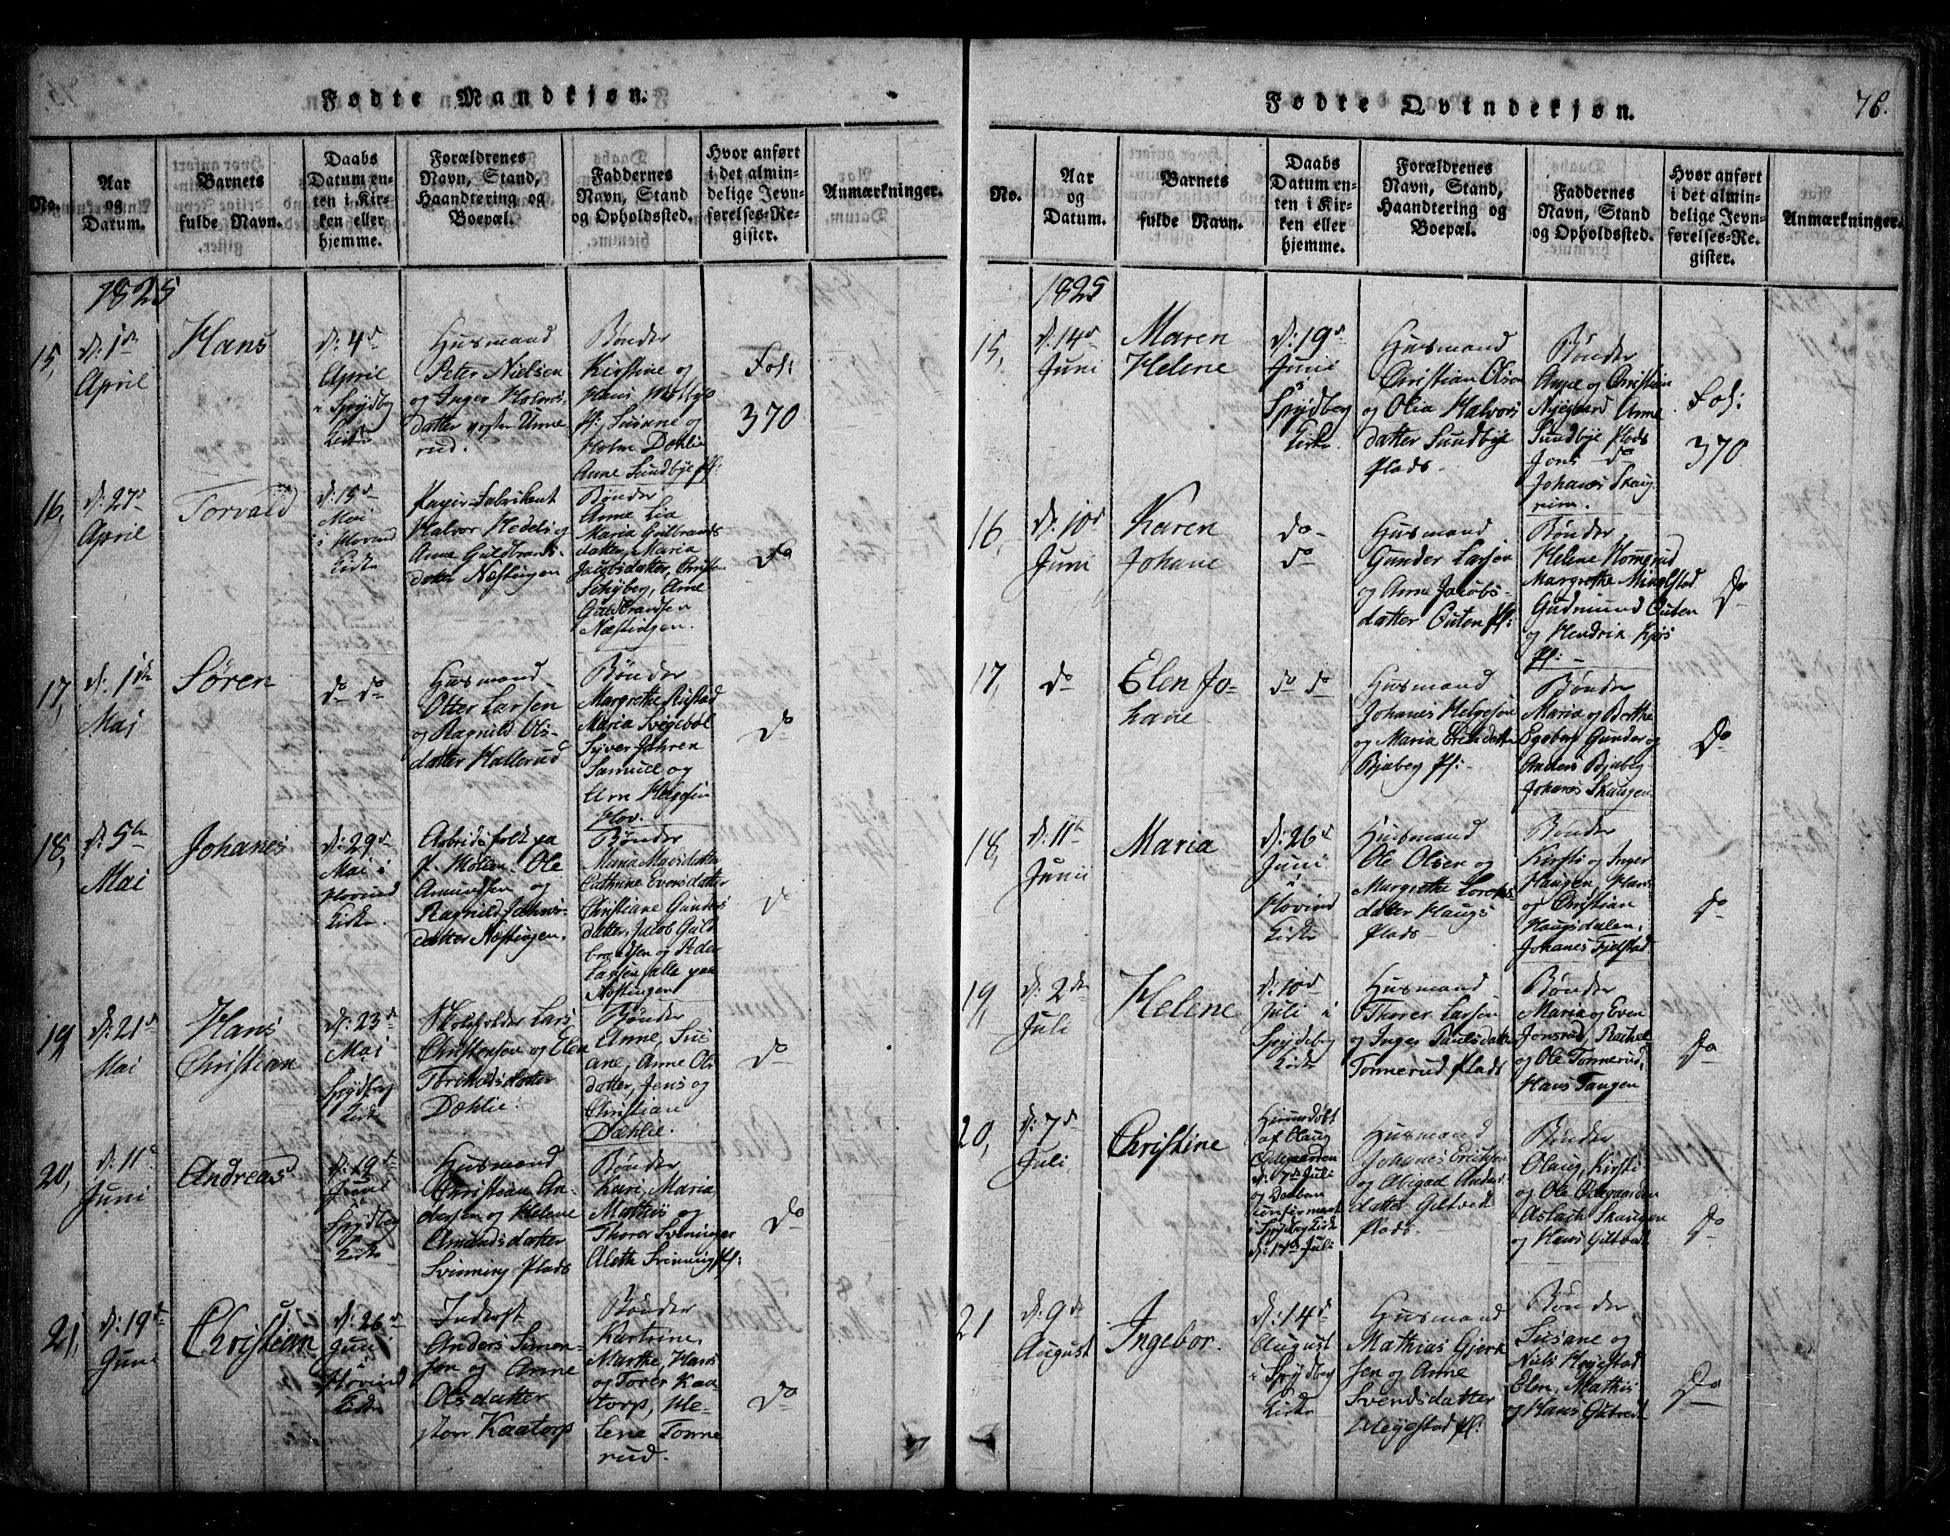 Fødte Mandkjøn.
No.
Aar
og
Datum.
Barnets
fulde Navn.
Daabs
Datum en-
ten i Kir-
ken eller
hjemme.
Forældrenes
Navn, Stand,
Haandtering og
Boepæl.
Faddernes
Navn, Stand
og Opholdssted.
Hvor anført
i det almin-
delige Jevn-
førelses-Re-
gister.
Anmærkninger.
1825
15,
d: 1ste
April
Hans
d: 4de
April
i Spydbg
Kirke
Husmand
Peter Nielsen
og Inger Holms-
datter
rud.
Bønder
Kirstine og
Hans
Pl: Susane og
Holm Dæhlie
Anne Sundbye Pl:
Fol:
370
16,
d: 27de
April
Torvald
d: 15de
Mai
i Hovind
Kirke
Papir-Fabrikent
Halvor Hedels og
Anne Guldbrands-
datter Næstingen
Bønder
Anne Lia
Maria Gulbrands
datter, Maria
Jacobsdatter, Christ
Schyberg, Arne
Guldbrandsen
Næstingen.
Do
17,
d: 1ste
Mai
Søren
do do
Husmand
Otter Larsen
og Ragnild Ols-
datter Kallerud
Bønder
Margrethe Rustad
Maria Svigebøl
Syver Jahren
Samuel og
Arn Helgesen
Hov.
Do
18,
d: 5te
Mai
Johanes
d: 29de
Mai i
Hovind
Kirke.
Arbeids folk paa
Ole
Amundsen og
Ragnild
datter Næstingen.
Bønder
Maria
Cathrine Eversdatter
Christiane Gunders
datter, Jacob Guld
brandsen og Peder
Larsen alle paa
Næstingen
Do
19,
d: 21de
Mai
Hans
Christian
d: 23de
Mai
Spydbeg
Kirke
Skoleholder Lars
Christensen og Elen
datter
Dæhlie.
Bønder
Anne, Sus
ane, Anne Ols
datter, Jens og
Christian
Dæhlie.
Do
20,
d: 11te
Juni
Andreas
d: 19de
Juni
Spydbeg
Kirke
Husmand
Christian An-
dersen og Helene
Amundsdatter
Svinning Plads
Bønder
Kari, Maria,
Mathis og
Thorer Svinninger
Aleth Svinning Pl:
Do
21,
d: 19de
Juni
Christian
d: 26de
Juni
i
Hovind
Kirke
Inderst
Anders Simon-
sen og Anne
Olsdatter
Kaatorp
Bønder
Kartrine,
Marthe, Hans
og Torer Kaa-
torp, He-
lena Tonne
rud.
Do
Fødte Qvindekjøn.
76.
No.
Aar
og
Datum.
Barnets
fulde Navn.
Daabs
Datum en-
ten i Kir-
ken eller
hjemme.
Forældrenes
Navn, Stand,
Haandtering og
Boepæl.
Faddernes
Navn, Stand
og Opholdssted.
Hvor anført
i det almin-
delige Jevn-
førelses-Re-
gister.
Anmærkninger.
1825
15,
d: 14de
Juni
Maren
Helene
d: 19de
Juni
Spydbeg
Kirke
Husmand
Christian Olsen
og Olia Halvors
datter Sundbye
Plads
Bønder
og Christian
Nyegaard Anne
Sundbye Plads
Jens do
Johanes Skaug
rum.
Fol:
370
16,
d: 10de
Juni
Karen
Johane
do
do
Husmand
Gunder Larsen
og Anne Jacobs-
datter Outen Pl:
Bønder
Helene Homgrud
Margrethe Mingstad
Gudmund Outen
og Hendrik Kjøs
Pl:
Do
17,
do
Elen Jo-
hane.
do do
Husmand
Johanes Helgesen
og Maria Ericksdatter
Bjabeg Pl:
Bønder
Maria og Berthe
Egeberg Gunder og
Anders Bjabeg
Johanes Skaugen
Do
18,
d: 11te
Junii
Maria
d: 26de
Juni
i
Hovind
Kirke
Husmand
Ole Olsen og
Margrethe Lorents
datter Haugs
Plads
Bønder
Kirsti og Inger
Haugen, Hans
og Christian
Haugsdalen,
Johanes Fjelstad
Do
19,
d: 2den
Juli
Helene
d: 10de
Juli i
Spydebeg
Kirke
Husmand
Thorer Larsen
og Inger Paulsdatter
Tonnerud Plads
Bønder
Maria og Even
Jonsrud, Rachel
og Ole Tonnerud,
Hans Tangen
Do
20,
d: 7de
Juli
Christine
Hjemmedøbt
af Olaug
Odegaarden
d: 7de Juli
og Daaben
confirmeret
i Spydeb Kirke
d: 17de Juli
Husmand
Johanes Ericksen
og Abigael Anders
datter Giltved
Plads.
Bønder
Olaug, Kirsti
og Ole Odegaarden
Aslach Skaugen
og Hans Giltvedt
Do
21
d: 9de
August
Ingebor.
d: 14de
August
i Spydbeg
Kirke
Husmand
Mathias Gjert
sen og Anne
Svendsdatter
Mejestad Pl:
Bønder
Susane og
Niels Mejestad
Elen, Mathis
og Hans Giltvedt
Do